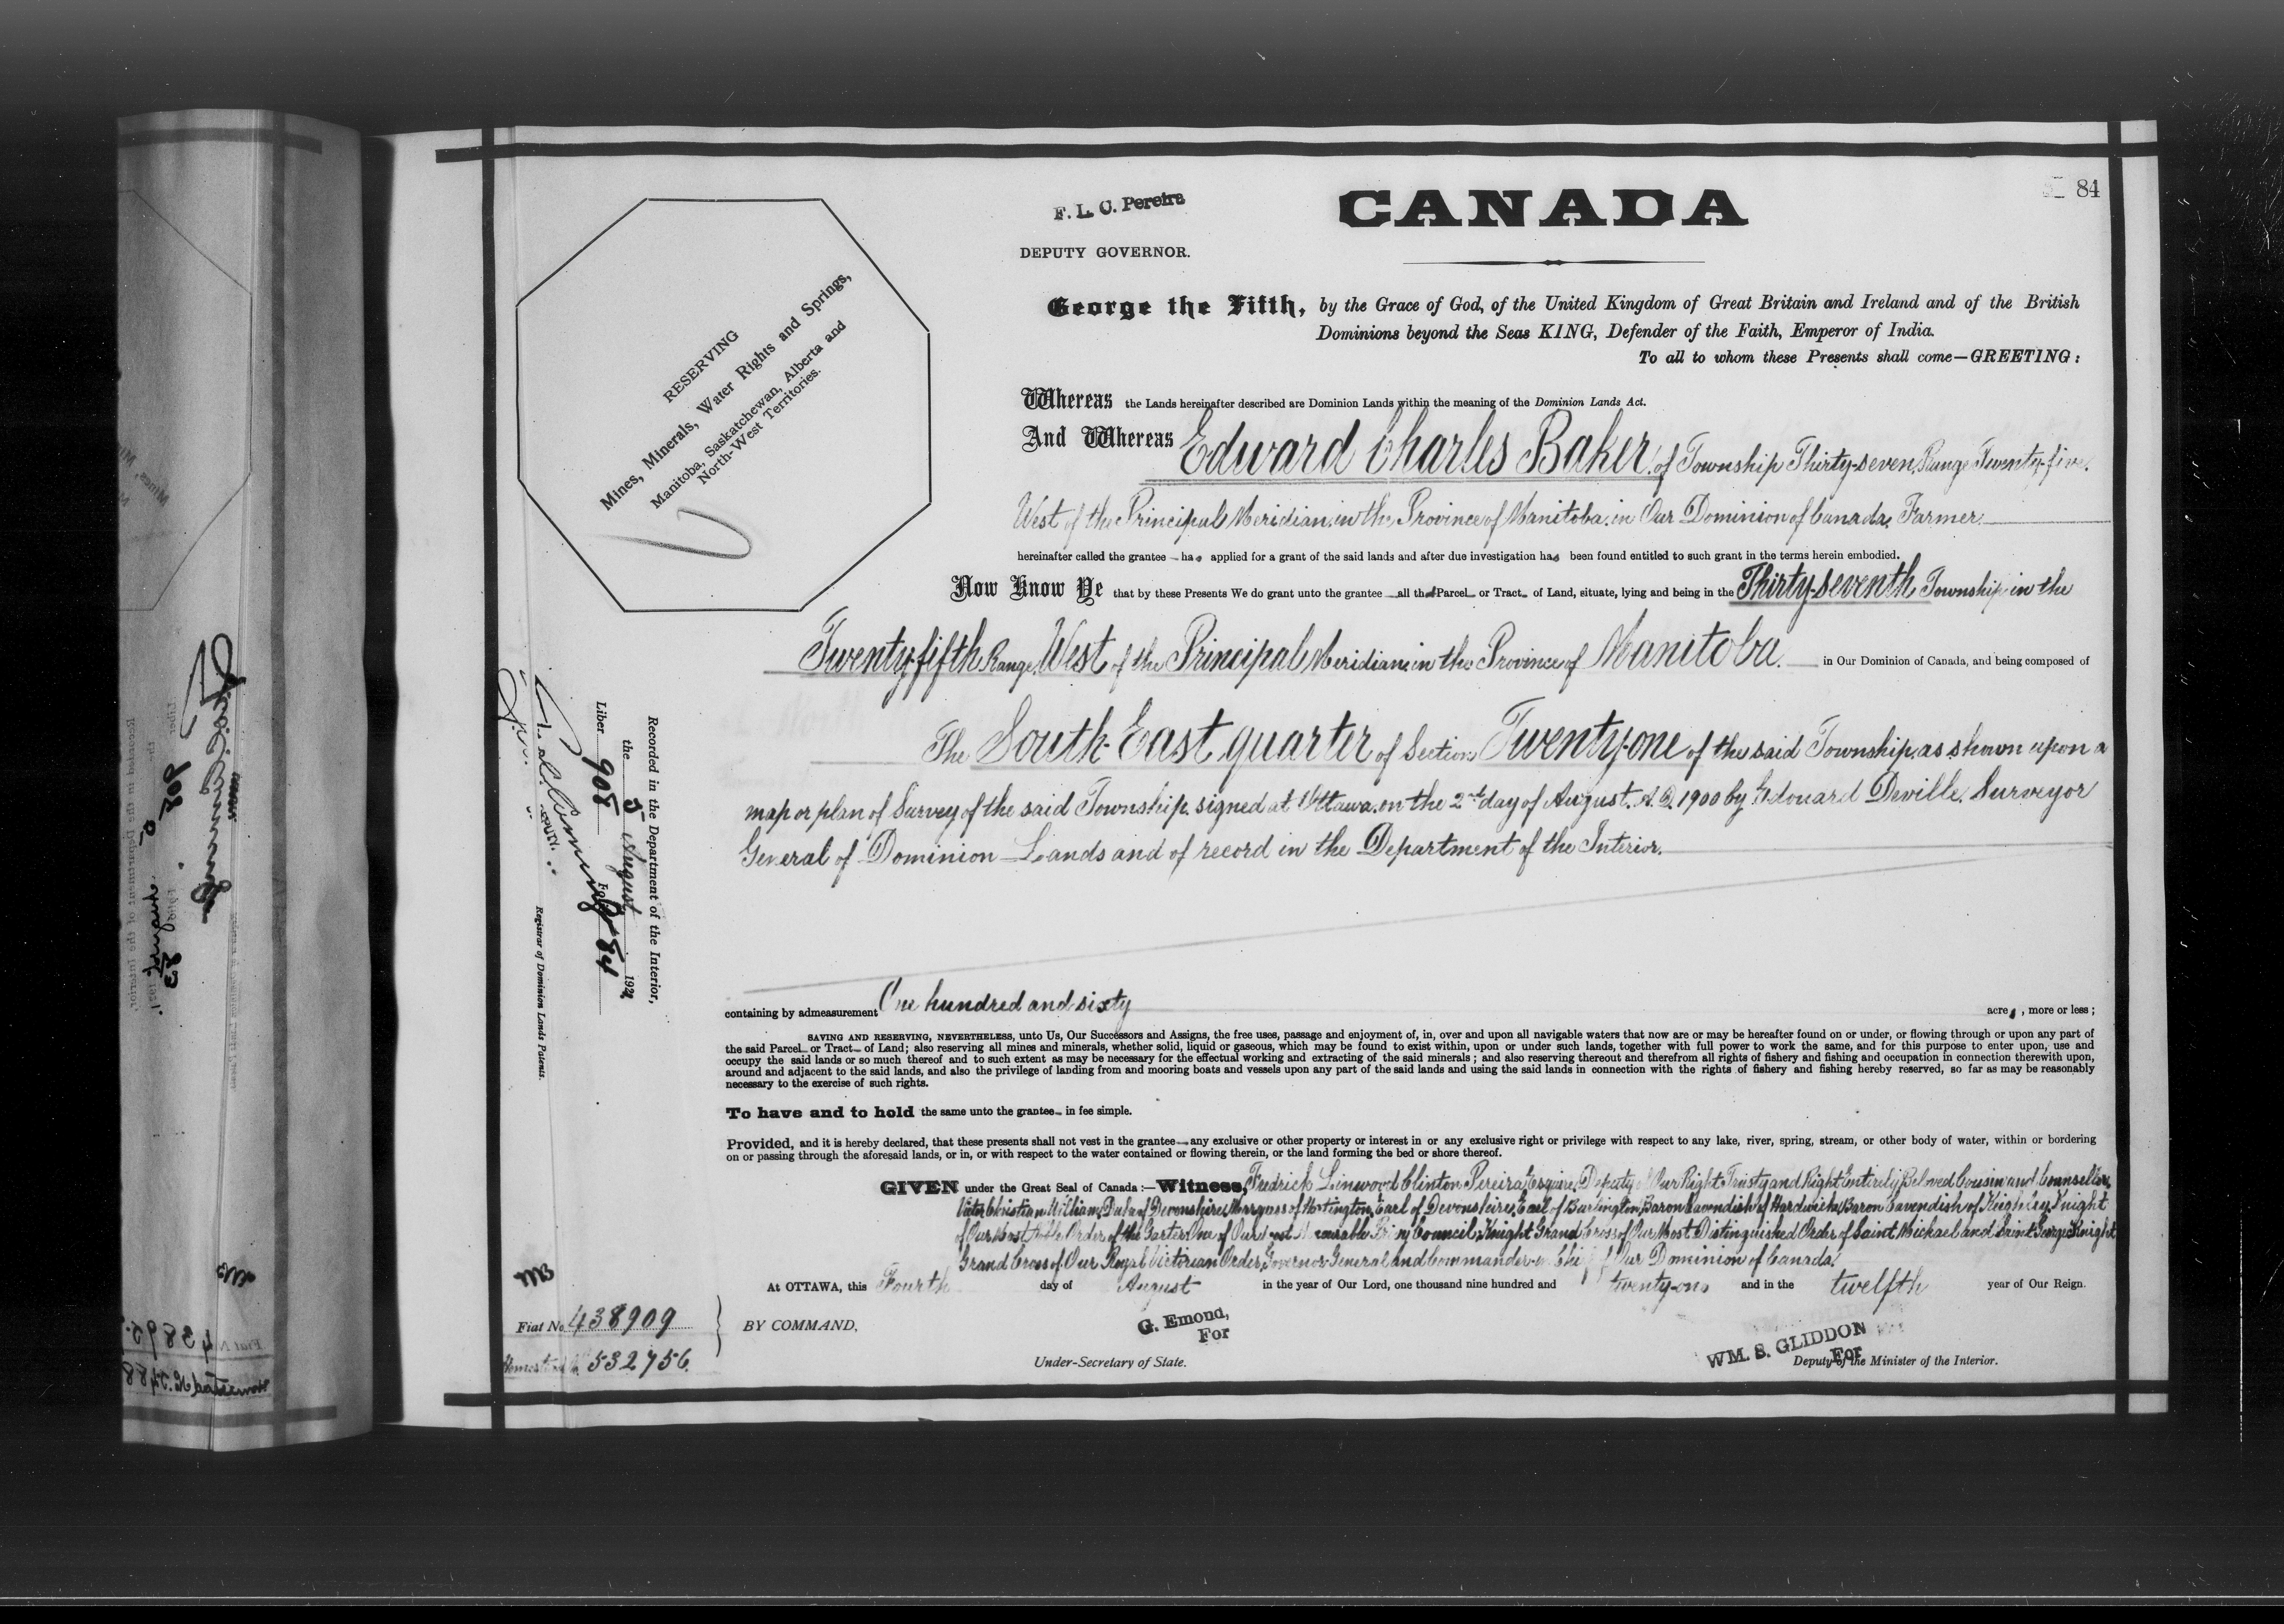 84
CANADA
F. L. C. Pereira
DEPUTY GOVERNOR.
George the Fifth, by the Grace of God, of the United Kingdom of Great Britain and Ireland and of the British
Dominions beyond the Seas KING, Defender of the Faith, Emperor of India.
To all to whom these Presents shall come—GREETING:
RESERVING
Mines, Minerals, Water Rights and Springs,
Manitoba, Saskatchewan, Alberta and
North-West Territories.
Whereas the Lands hereinafter described are Dominion Lands within the meaning of the Dominion Lands Act.
And Whereas Edward Charles Baker of Township Thirty-seven, Range Twenty-five,
West of the Principal Meridian, in the Province of Manitoba, in Our Dominion of Canada, Farmer
hereinafter called the grantee has applied for a grant of the said lands and after due investigation has been found entitled to such grant in the terms herein embodied.
Now Know Ye that by these Presents We do grant unto the grantee all that Parcel or Tract of Land, situate, lying and being in the Thirty-seventh Township in the
Twenty-fifth Range, West of the Principal Meridian, in the Province of Manitoba. in Our Dominion of Canada, and being composed of
The South-East quarter of Section Twenty-one of the said Township as shown upon a
map or plan of Survey of the said Township signed at Ottawa on the 2nd day of August, A.D. 1900 by Edouard Deville, Surveyor
General of Dominion Lands and of record in the Department of the Interior.
containing by admeasurement One hundred and sixty acres, more or less;
SAVING AND RESERVING, NEVERTHELESS, unto Us, Our Successors and Assigns, the free uses, passage and enjoyment of, in, over and upon all navigable waters that now are or may be hereafter found on or under, or flowing through or upon any part of
the said Parcel or Tract of Land; also reserving all mines and minerals, whether solid, liquid or gaseous, which may be found to exist within, upon or under such lands, together with full power to work the same, and for this purpose to enter upon, use and
occupy the said lands or so much thereof and to such extent as may be necessary for the effectual working and extracting of the said minerals; and also reserving thereout and therefrom all rights of fishery and fishing and occupation in connection therewith upon,
around and adjacent to the said lands, and also the privilege of landing from and mooring boats and vessels upon any part of the said lands and using the said lands in connection with the rights of fishery and fishing hereby reserved, so far as may be reasonably
necessary to the exercise of such rights.
To have and to hold the same unto the grantee in fee simple.
Provided, and it is hereby declared, that these presents shall not vest in the grantee any exclusive or other property or interest in or any exclusive right or privilege with respect to any lake, river, spring, stream, or other body of water, within or bordering
on or passing through the aforesaid lands, or in, or with respect to the water contained or flowing therein, or the land forming the bed or shore thereof.
GIVEN under the Great Seal of Canada:—Witness, Fredrick Linwood Clinton Pereira, Esquire, Deputy of Our Right Trusty and Right Entirely Beloved Cousin and Counsellor,
Victor Christian William, Duke of Devonshire, Marquess of Hartington, Earl of Devonshire, Earl of Burlington, Baron Cavendish of Hardwicke, Baron Cavendish of Keighley, Knight
of Our Most Noble Order of the Garter, One of Our Most Honourable Privy Council, Knight Grand Cross of Our Most Distinguished Order of Saint Michael and Saint George, Knight
Grand Cross of Our Royal Victorian Order, Governor General and Commander-in-Chief of Our Dominion of Canada.
At OTTAWA, this Fourth day of August in the year of Our Lord, one thousand nine hundred and twenty-one and in the twelfth year of Our Reign.
BY COMMAND,
G. Emond,
For
Under-Secretary of State.
WM. S. GLIDDON
For
Deputy of the Minister of the Interior.
Recorded in the Department of the Interior,
the 5 August 1921
Liber 908 Folio 84
Registrar of Dominion Lands Patents.
Fiat No. 438909
Homestead No. 532756